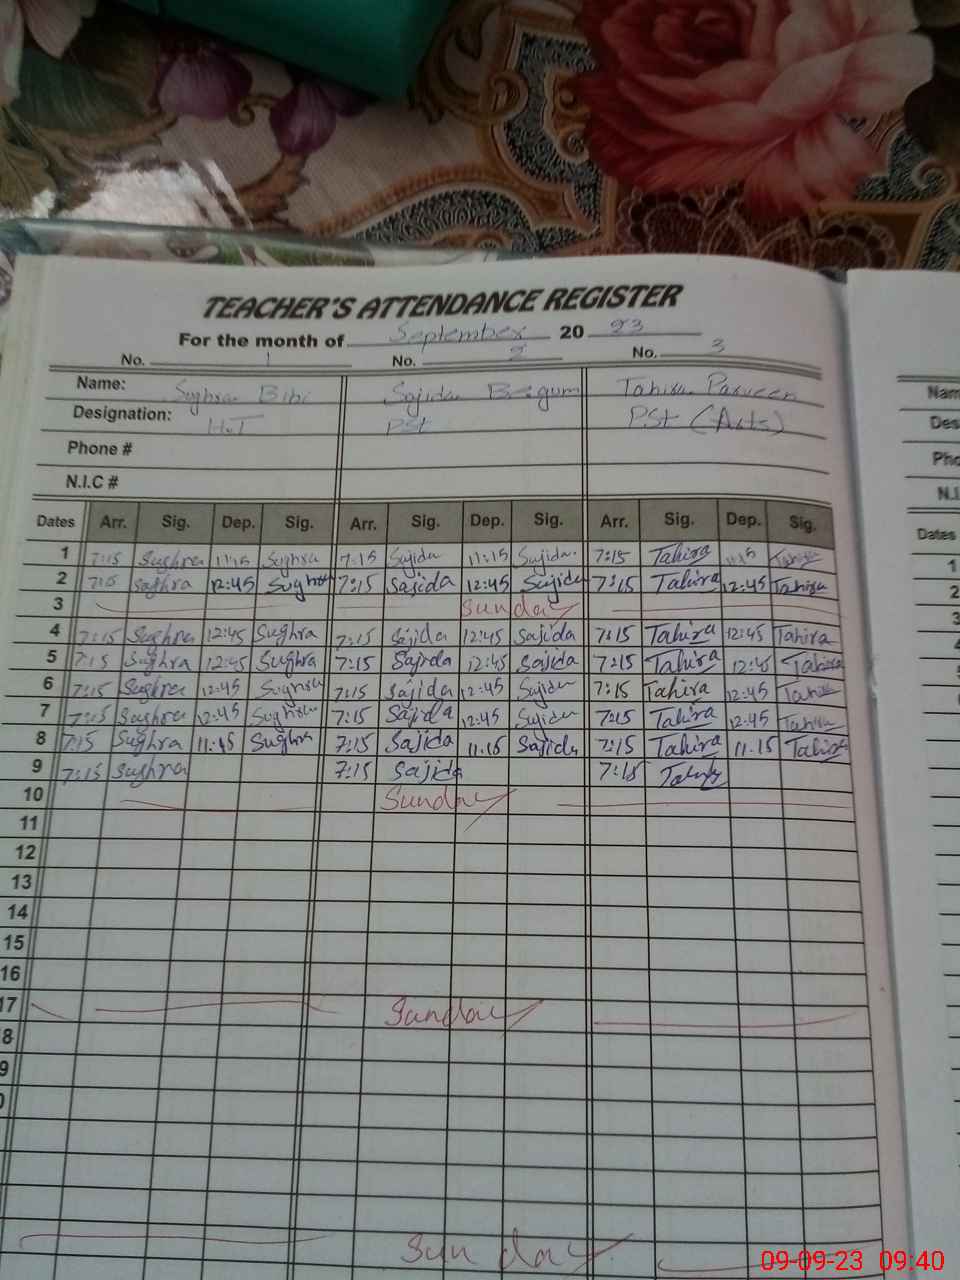 TEACHER'S ATTENDANCE REGISTER
For the month of September 20 23
No. 1 No. 2 No. 3
Name: Sughra Bibi Sajida Begum Tahira Parveen Nam
Designation: H.T PST PST (Arts) Des
Phone # Pho
N.I.C # N.I
Dates Arr. Sig. Dep. Sig. Arr. Sig. Dep. Sig. Arr. Sig. Dep. Sig. Dates
1 7:15 Sughra 11:15 Sughra 7:15 Sajida 11:15 Sajida 7:15 Tahira 11:15 Tahira 1
2 7:15 Sughra 12:45 Sughra 7:15 Sajida 12:45 Sajida 7:15 Tahira 12:45 Tahira 2
3 Sunday 3
4 7:15 Sughra 12:45 Sughra 7:15 Sajida 12:45 Sajida 7:15 Tahira 12:45 Tahira 4
5 7:15 Sughra 12:45 Sughra 7:15 Sajida 12:45 Sajida 7:15 Tahira 12:45 Tahira
6 7:15 Sughra 12:45 Sughra 7:15 Sajida 12:45 Sajida 7:15 Tahira 12:45 Tahira
7 7:15 Sughra 12:45 Sughra 7:15 Sajida 12:45 Sajida 7:15 Tahira 12:45 Tahira
8 7:15 Sughra 11:15 Sughra 7:15 Sajida 11:15 Sajida 7:15 Tahira 11.15 Tahira
9 7:15 Sughra 7:15 Sajida 7:15 Tahira
10 Sunday
11
12
13
14
15
16
17 Sunday
8
9
0
Sunday
09-09-23 09:40